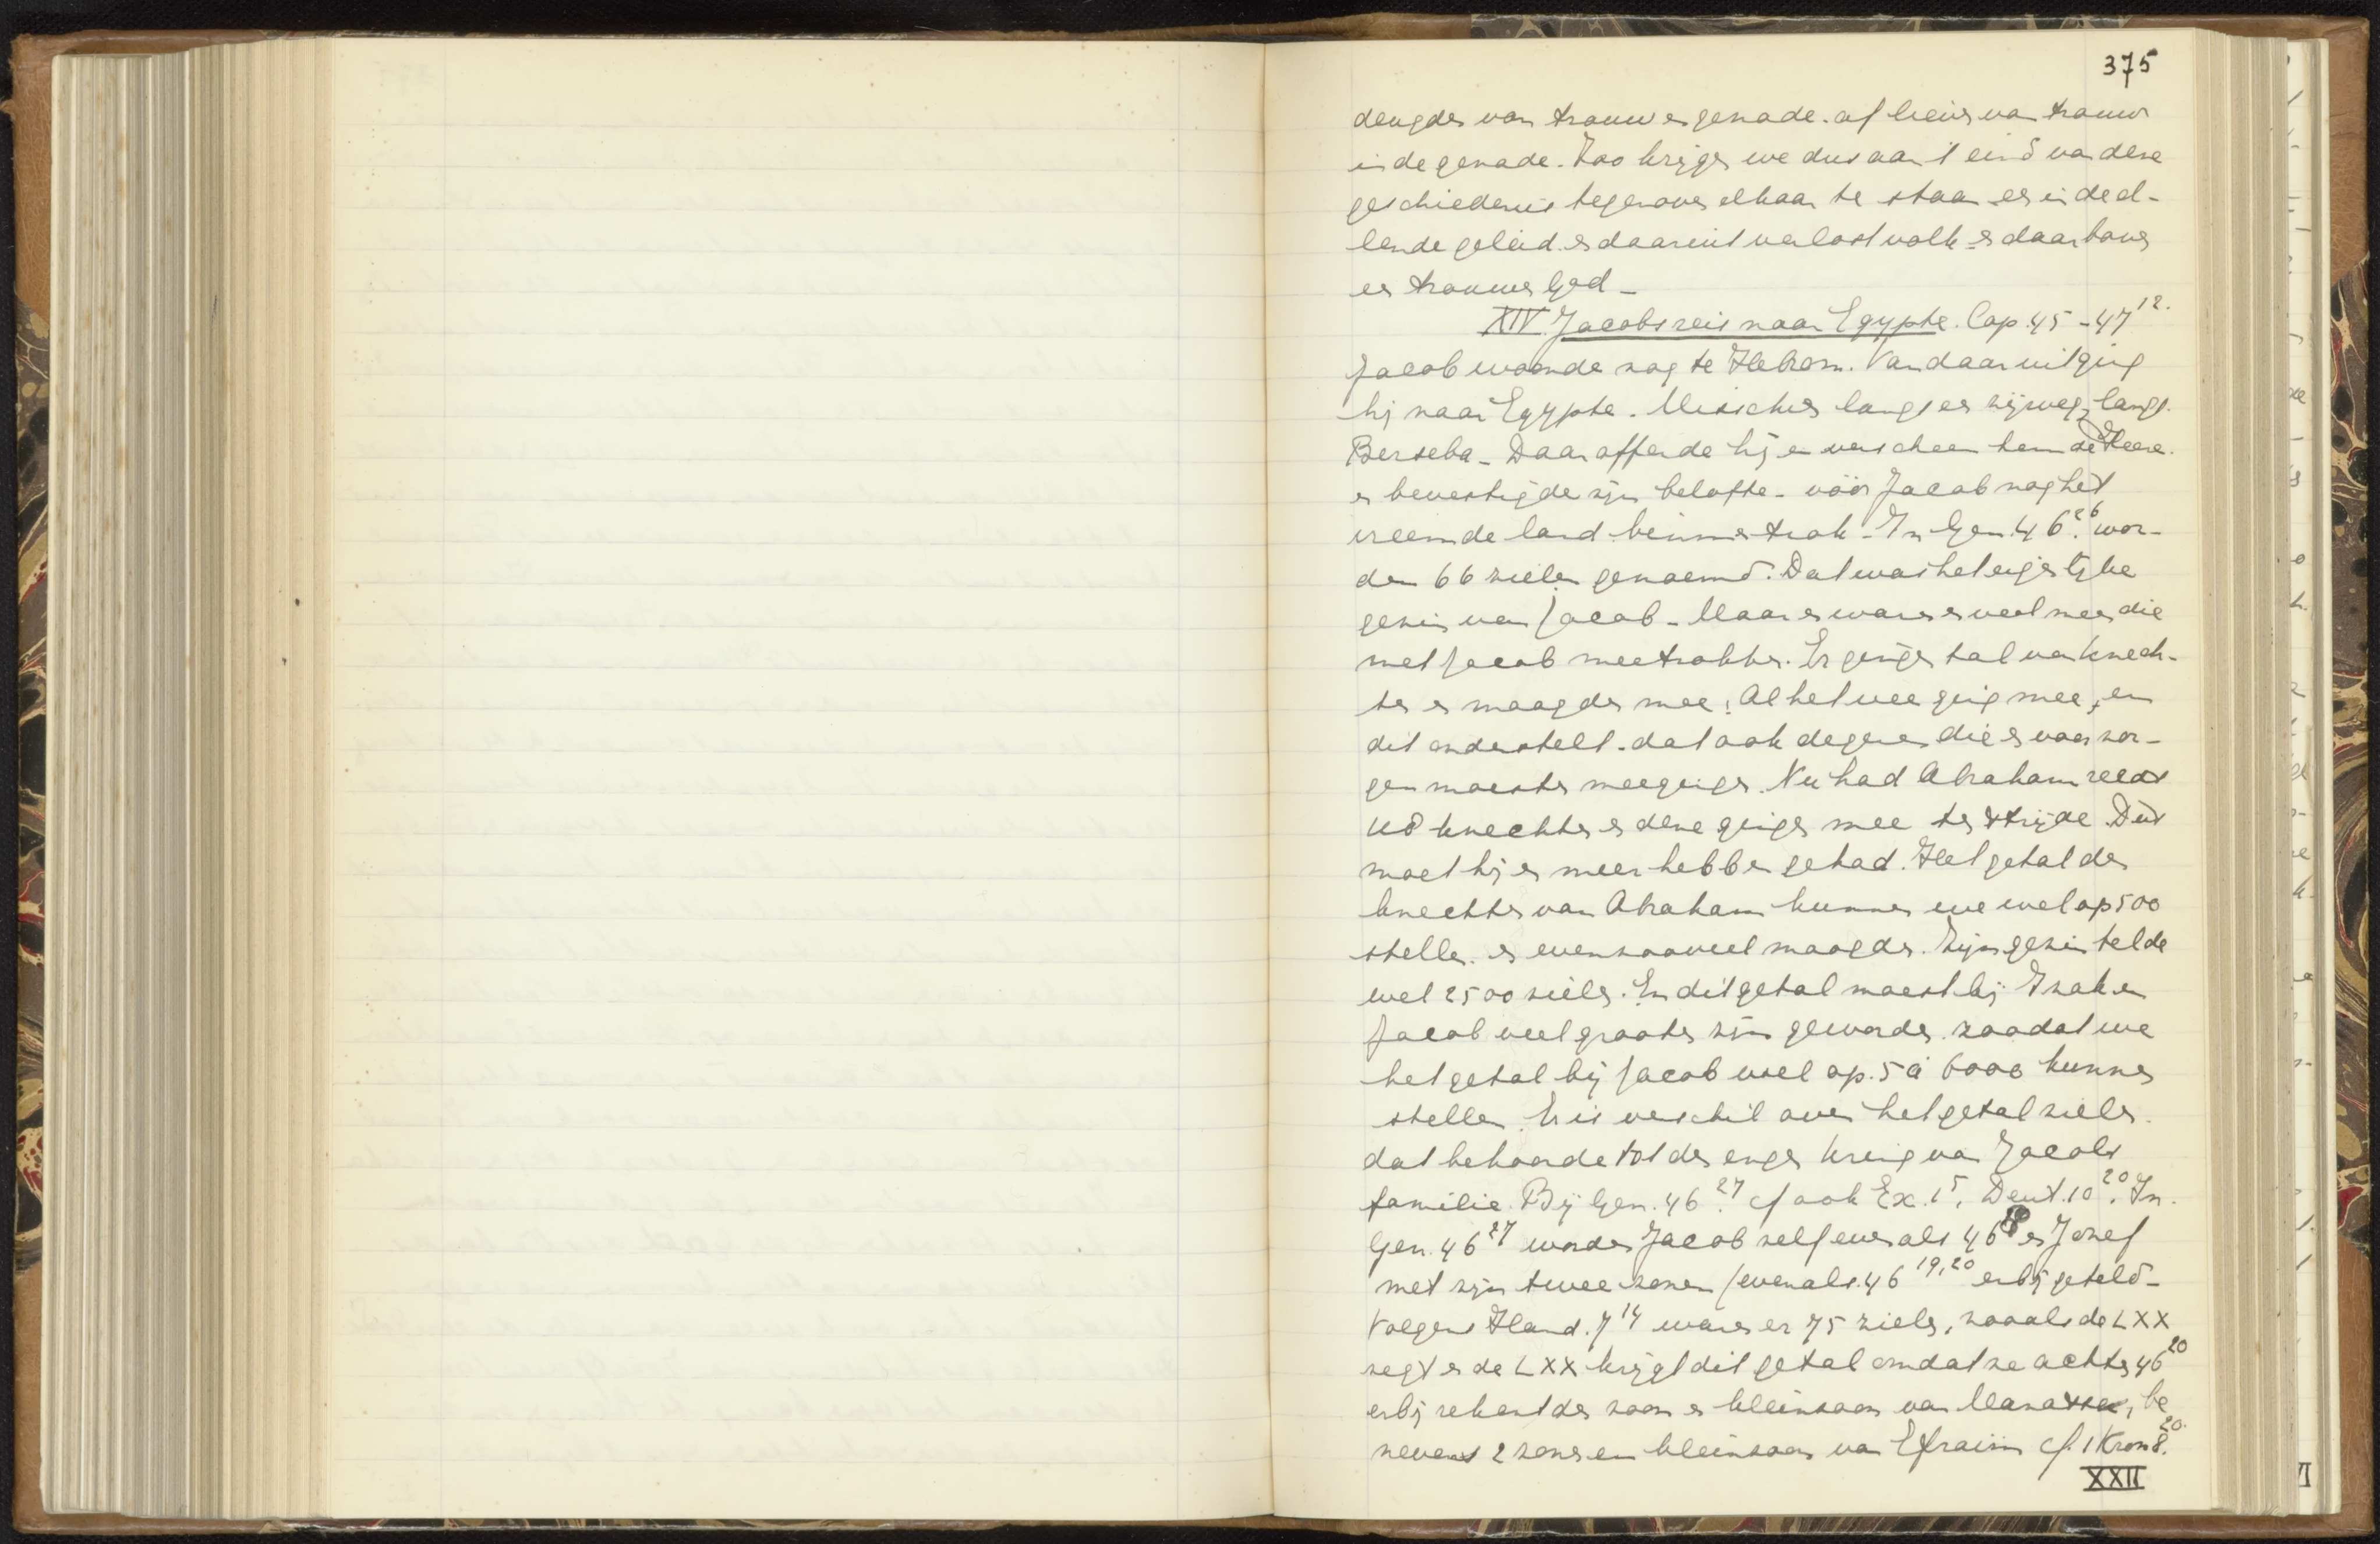 375
deugden van trouw en genade. of liever van trouw
in de genade. Zoo krijgen we dus aan 't eind van deze
geschiedenis tegenover elkaar te staan een in de el-
lende geleid en daaruit verlost volk en daarboven
een trouwe God –
XIV Jacobs reis naar Egypte. Cap. 45 – 47 12.
Jacob woonde nog te Hebron. Van daaruit ging
hij naar Egypte. Misschien langs een zijweg, langs
Berseba – Daar offerde hij en verscheen hem de Heere.
en bevestigde zijn belofte – vóór Jacob nog het
vreemde land binnen trok – In Gen. 46 26. wor-
den 66 zielen genoemd. Dat was het eigenlijke
gezin van Jacob – Maar er waren er veel meer die
met Jacob meetrokken. Er gingen tal van knech-
ten en maagden mee! Al het vee ging mee, en
dit onderstelt dat ook degenen die er voor zor-
gen moesten meegingen. Nu had Abraham reeds
118 knechten en deze gingen mee ten strijde. Dus
moet hij er meer hebben gehad. Het getal der
knechten van Abraham kunnen we wel op 500
stellen. en evenzooveel maagden. Zijn gezin telde
wel 2500 zielen. En dit getal moest bij Izak en
Jacob veel grooter zijn geworden. zoodat we
het getal bij Jacob wel op. 5 à 6000 kunnen
stellen. Er is verschil over het getal zielen.
dat behoorde tot den engen kring van Jacobs
familie. Bij Gen. 46 27. cf ook Ex. 1 5. Deut. 10 20. In.
Gen. 46 27 worden Jacob zelf evenals 46 en Jozef
met zijn twee zonen (evenals. 46 19,20 erbij geteld –
Volgens Hand. 7 14 waren er 75 zielen, zooals de LXX
zegt en de LXX krijgt dit getal omdat ze achter 46 20
erbij rekent den zoon en kleinzoon van Manasse, be
nevens 2 zonen en kleinzoon van Efraïm cf. 1 Kron 8. 20.
XXII